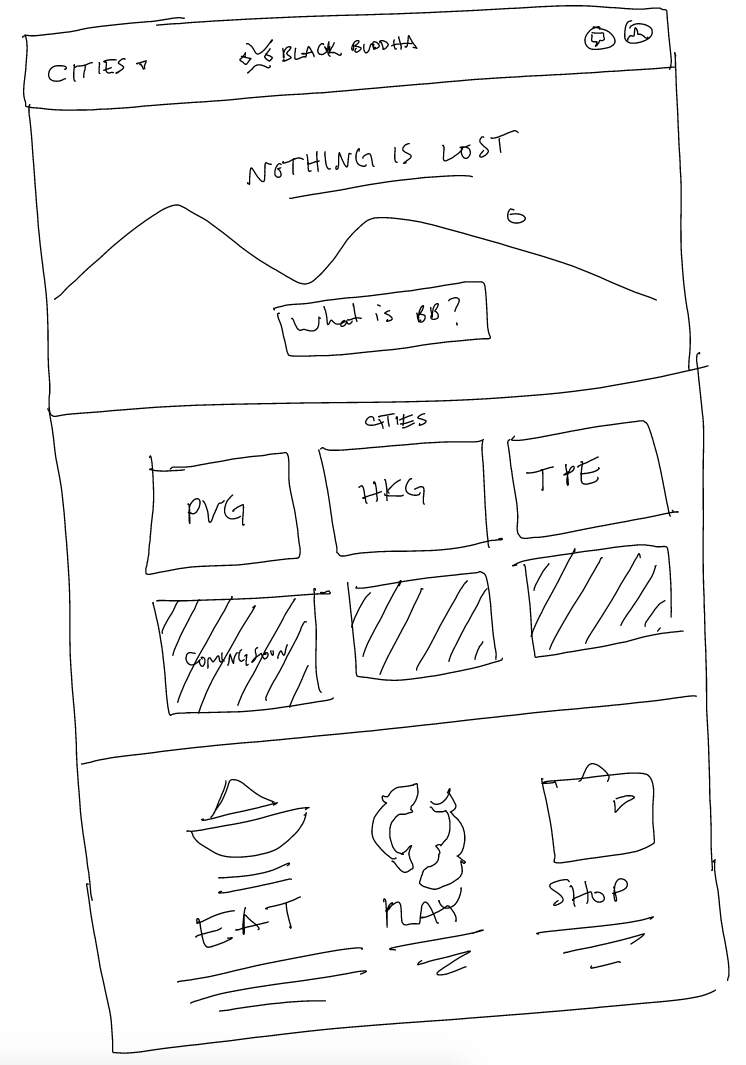 CITIES
BLACK BUDDHA
NOTHING IS LOST
What is BB?
CITIES
PVG
HKG
TPE
COMING SOON
EAT
PLAY
SHOP